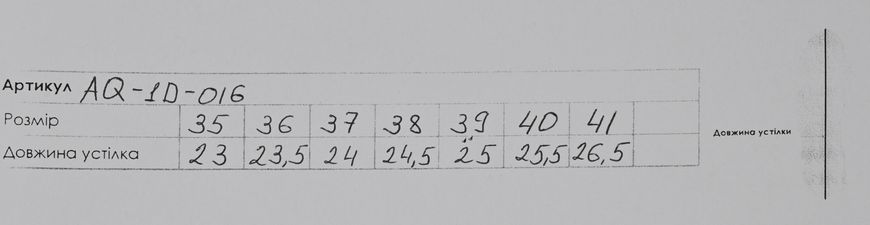 Артикул AQ-1D-016
Розмір 35 36 37 38 39 40 41
Довжина устілки
Довжина устілка 23 23,5 24 24,5 25 25,5 26,5